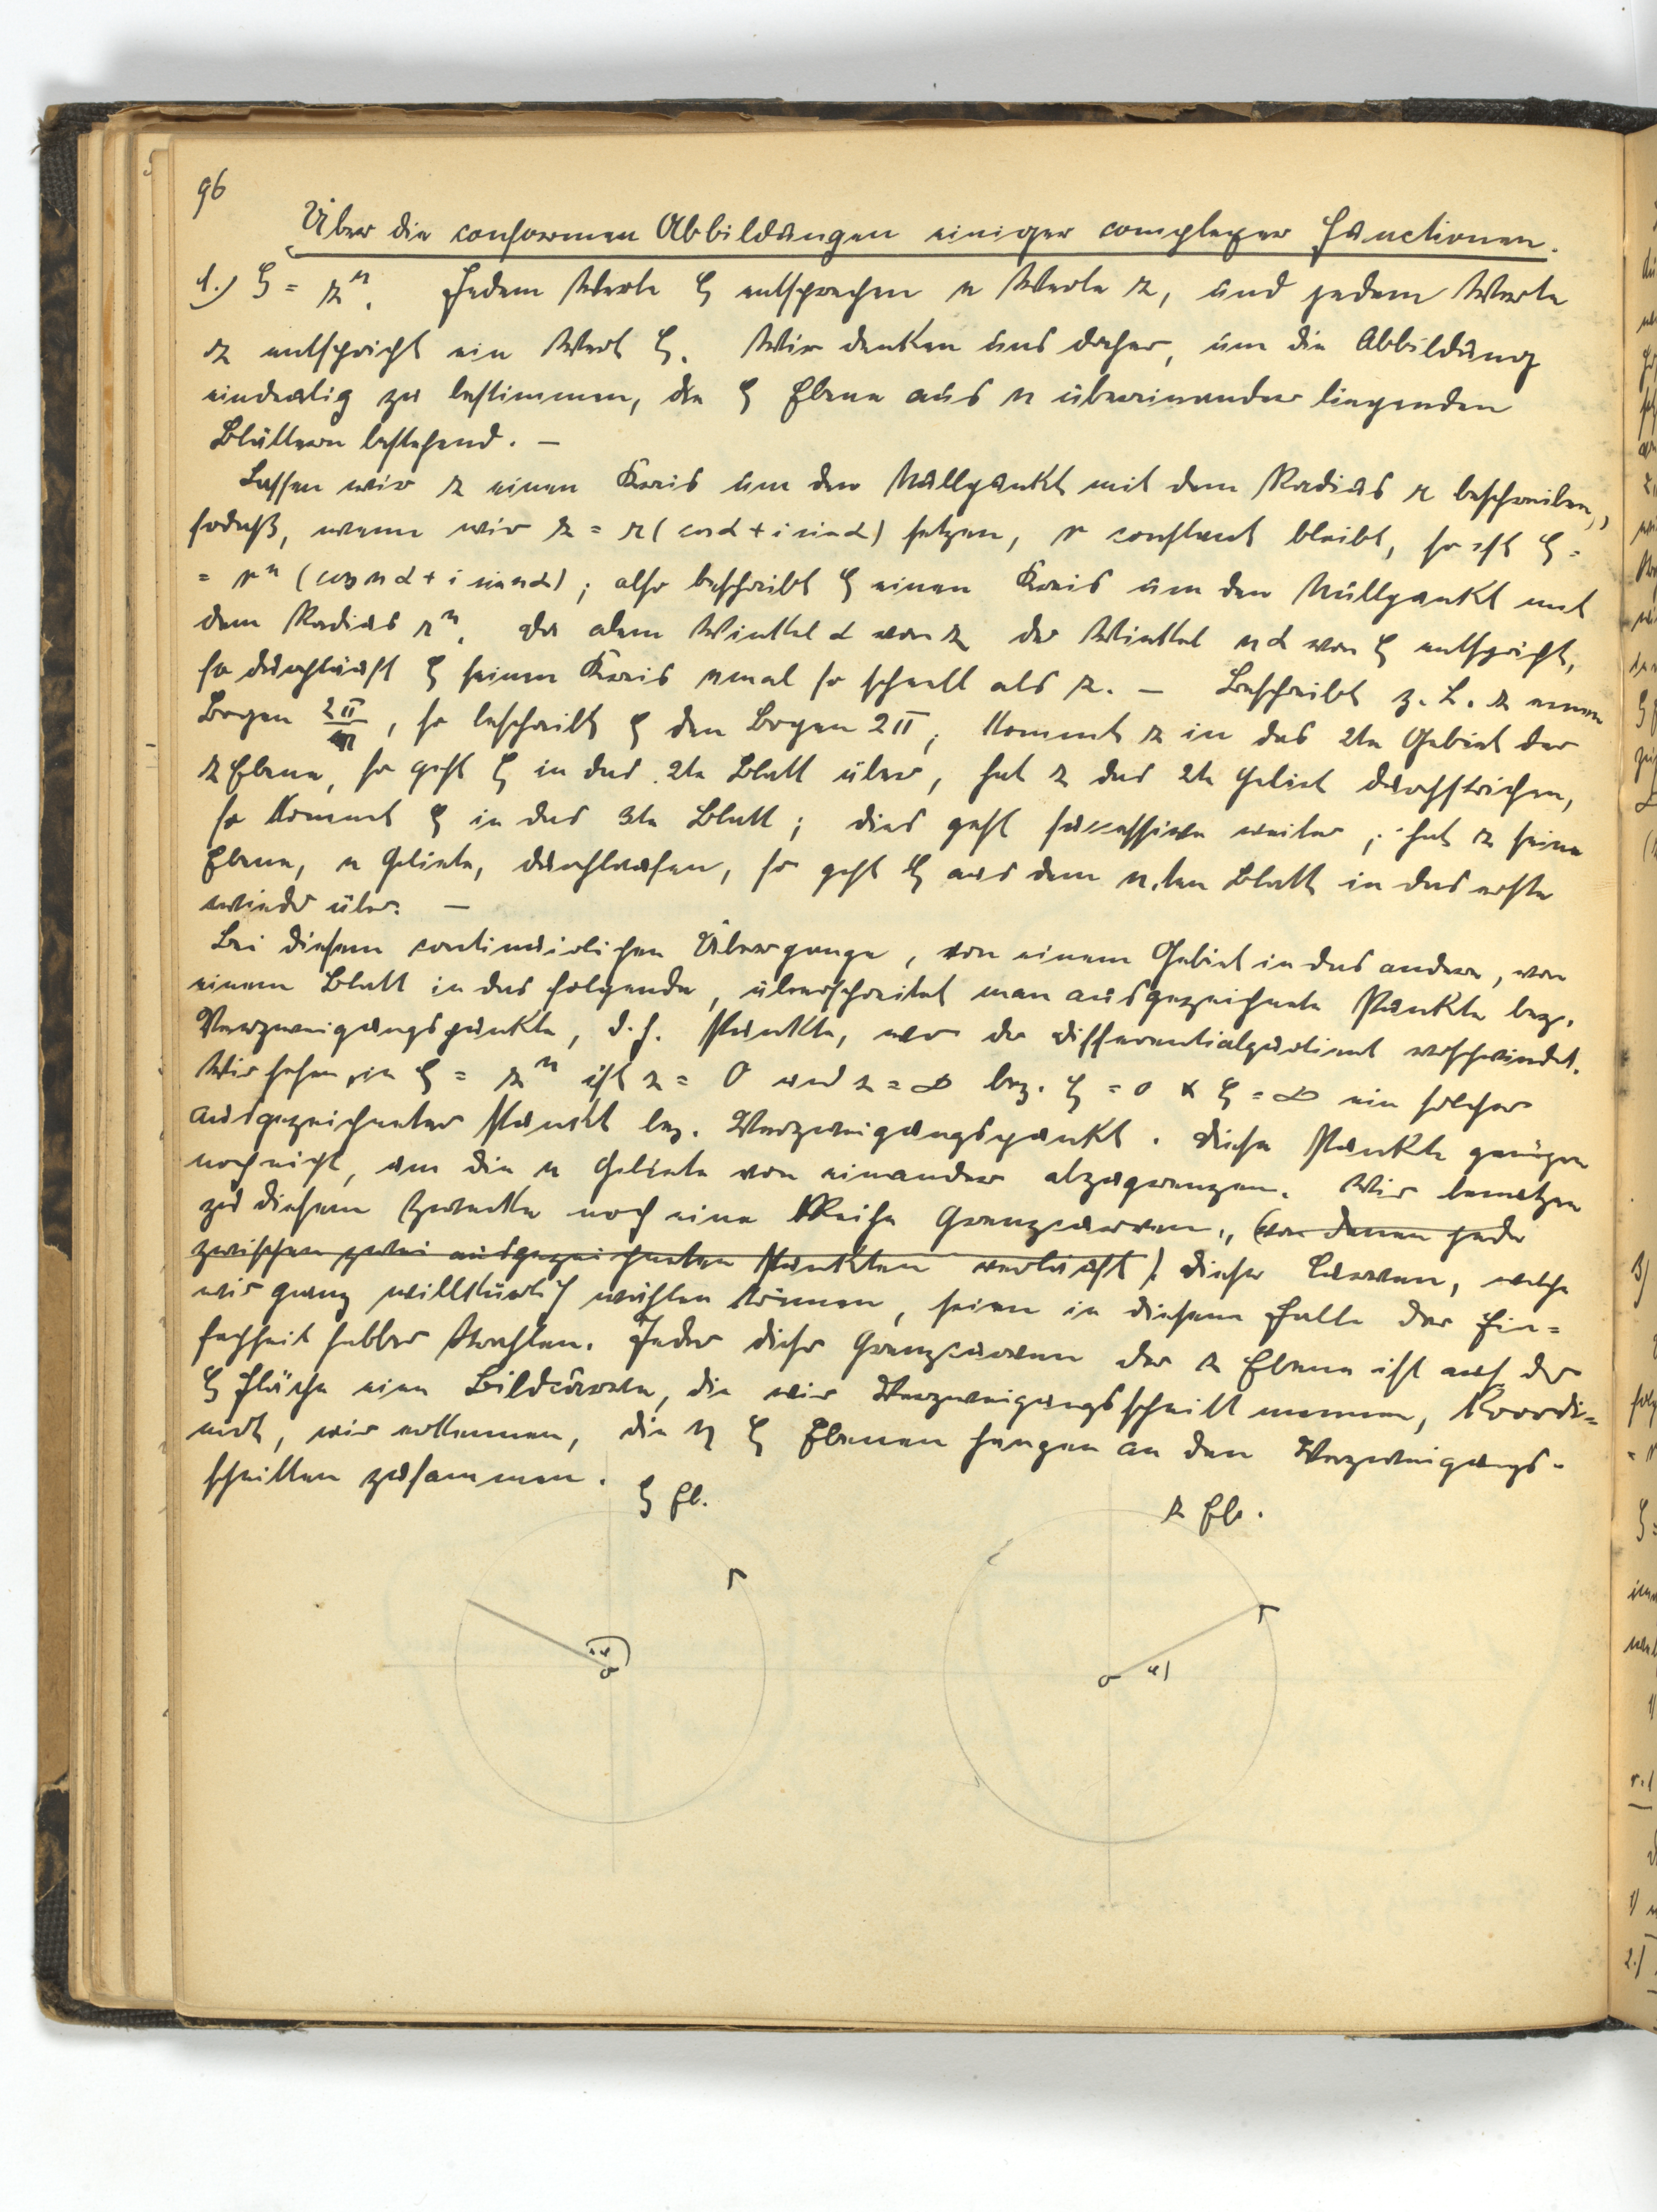 96
Über die conformen Abbildungen einiger complexer Functionen.
1.) ζ = z^n. Jedem Werte ζ entsprechen n Werte z, und jedem Werte
z entspricht ein Wert ζ. Wir denken uns daher, um die Abbildung
eindeutig zu bestimmen, die ζ Ebene aus n übereinander liegenden
Blättern bestehend. —
Lassen wir z einen Kreis um den Nullpunkt mit dem Radius r beschreiben,
sodaß, wenn wir z = r (cos α + i sin α) setzen, r constant bleibt, so ist ζ =
= r^n (cos nα + i sin nα); also beschreibt ζ einen Kreis um den Nullpunkt mit
dem Radius r^n. Da dem Winkel α von z der Winkel nα von ζ entspricht,
so durchläuft ζ seinen Kreis nmal so schnell als z. — Beschreibt z. B. z einen
Bogen 2π/n, so beschreibt ζ den Bogen 2π; kommt z in das 2te Gebiet der
z Ebene, so geht ζ in das 2te Blatt über, hat z das 2te Gebiet durchstrichen,
so kommt ζ in das 3te Blatt; dies geht successive weiter; hat z seine
Ebene, n Gebiete, durchlaufen, so geht ζ aus dem n.ten Blatt in das erste
wieder über. —
Bei diesem continuierlichen Übergange, von einem Gebiet in das andere, von
einem Blatt in das folgende, überschreitet man ausgezeichnete Punkte bez.
Verzweigungspunkte, d. h. Punkte, wo der Differentialquotient verschwindet.
Wir sehen, in ζ = z^n ist z = 0 und z = ∞ bez. ζ = 0 & ζ = ∞ ein solcher
ausgezeichneter Punkt bez. Verzweigungspunkt. Diese Punkte genügen
noch nicht, um die n Gebiete von einander abzugrenzen. Wir benutzen
zu diesem Zwecke noch eine Reihe Grenzcurven, (von denen jede
zwischen zwei ausgezeichneten Punkten verläuft). Diese Curven, welche
wir ganz willkürlich wählen können, seien in diesem Falle der Ein=
fachheit halber Strahlen. Jeder dieser Grenzcurven der z Ebene ist auf der
ζ Fläche eine Bildcurve, die wir Verzweigungsschnitt nennen, koordi=
niert, wir erkennen, die n ζ Ebenen hängen an den Verzweigungs-
schnitten zusammen.
ζ Eb.
z Eb.
0
α
0